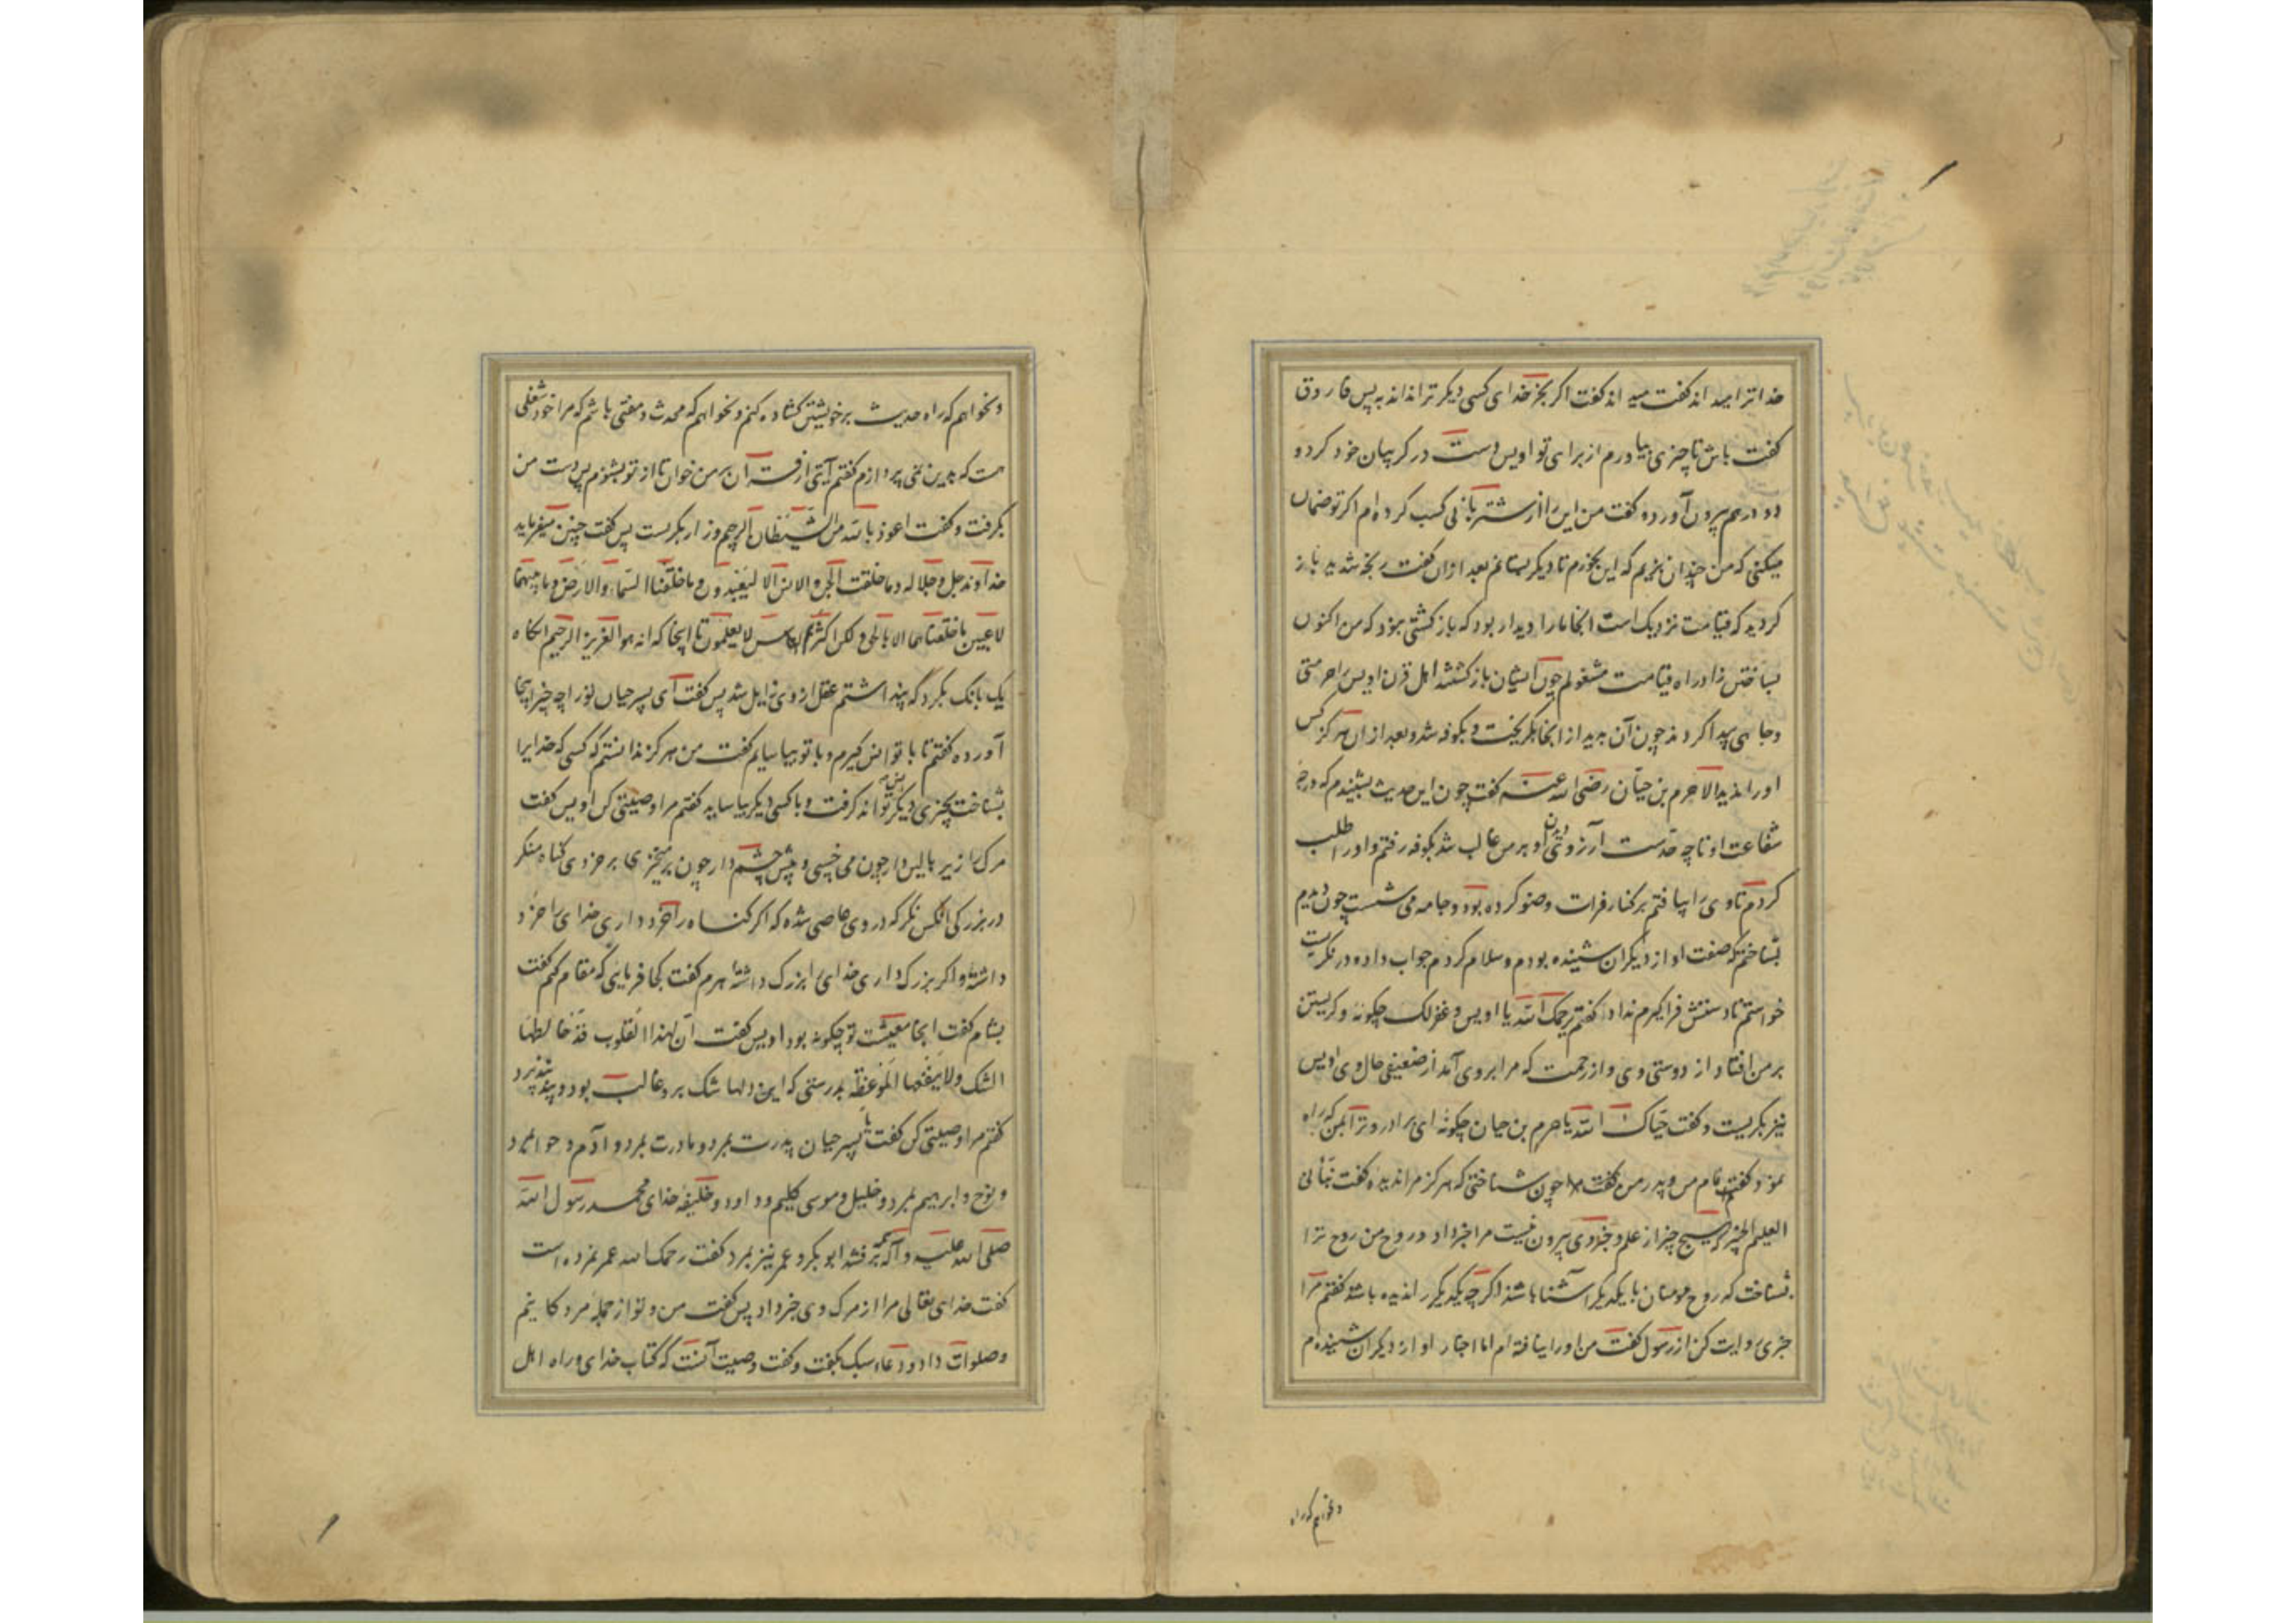 خدا ترا میداند کفت میداند کفت اکر بجز خدای کسی دیکر ترا نداند به پس فاروق
کفت باش تا چیزی بیاورم از برای تو اویس دست در کریبان خود کرد و
دو درهم بیرون آورد و کفت من این را از شتربانی کسب کرده ام اکر تو ضمان
میکنی که من چندان بزیم که این بخورم تا دیکر بستانم بعد از ان کفت رنجه شدید باز
کردید که قیامت نزدیک است انجا ما را دیدار بود که باز کشتی نبود که من اکنون
بساختن زاد راه قیامت مشغولم چون ایشان باز کشتند اهل قرن اویس را حرمتی
و جاهی پیدا کردند چون آن بدید از انجا بکریخت و بکوفه شد و بعد از ان هرکز کس
او را ندید الا هرم بن حیان رضی الله عنه کفت چون این حدیث بشنیدم که درجه
شفاعت او تا چه حدست آرزوی دیدن او بر من غالب شد بکوفه رفتم و او را طلب
کردم تا وی را بیافتم بر کنار فرات وضو کرده بود و جامه می شست چون دیدم
بشناختم که صفت او از دیکران شنیده بودم و سلام کردم جواب داد و در نکریست
خواستم تا دستش فرا کیرم نداد کفتم رحمک الله یا اویس و غفر لک چکونه و کریستن
بر من افتاد از دوستی وی و از رحمت که مرا بر وی آمد از ضعیفی حال وی اویس
نیز بکریست و کفت حیاک الله یا هرم بن حیان چکونه ای برادر و ترا بمن که راه
نمود کفتم نام من و پدر من کفت چون شناختی که هرکز مرا ندیده کفت نبأنی
العلیم الخبیر که هیچ چیز از علم و خبر وی بیرون نیست مرا خبر داد و روح من روح ترا
بشناخت که روح مومنان با یکدیکر آشنا باشند اکرچه یکدیکر را ندیده باشند کفتم مرا
خبری روایت کن از رسول کفت من او را نیافته ام اما اخبار او از دیکران شنیده ام
و نخواهم که راه
و نخواهم که راه حدیث بر خویشتن کشاده کنم و نخواهم که محدث و مفتی باشم که مرا خود شغلی
هست که بدین نمی پردازم کفتم آیتی از قرآن بر من خوان تا از تو بشنوم پس دست من
بکرفت و کفت اعوذ بالله من الشیطان الرجیم و زار بکریست پس کفت چنین میفرماید
خداوند جل و جلاله و ما خلقت الجن و الانس الا لیعبدون و ما خلقنا السماء و الارض و ما بینهما
لاعبین ما خلقناهما الا بالحق و لکن اکثرهم لا یعلمون تا اینجا که انه هو العزیز الرحیم آنکاه
یک بانک بکرد که پنداشتم عقل از وی زایل شد پس کفت ای پسر حیان تو را چه چیز اینجا
آورده کفتم تا با تو انس کیرم و با تو بیاسایم کفت من هرکز ندانستم که کسی که خدایرا
بشناخت بچیزی دیکر تواند کرفت و با کسی دیکر بیاساید کفتم مرا وصیتی کن اویس کفت
مرک را زیر بالین دار چون می خسپی و پیش چشم دار چون بر میخیزی بر خردی کناه منکر
در بزرکی آنکس نکر که در وی عاصی شده که اکر کناه را خرد داری خدای را خرد
داشته و اکر بزرک داری خدای را بزرک داشته هرم کفت کجا فرمایی که مقام کنم کفت
بشام کفت انجا معیشت تو چکونه بود اویس کفت ان لهذا القلوب قد خالطها
الشک و لا ینفعها الموعظة بدرستی که این دلها شک برو غالب بود و پند نپذیرد
کفتم مرا وصیتی کن کفت یا پسر حیان پدرت بمرد و مادرت بمرد و آدم و حوا بمرد
و نوح و ابرهیم بمرد و خلیل و موسی کلیم و داود و خلیفه خدای محمد رسول الله
صلی الله علیه و آله برفتند ابوبکر و عمر نیز بمرد کفت رحمک الله عمر نمرده است
کفت خدای تعالی مرا از مرک وی خبر داد پس کفت من و تو از جمله مردکانیم
و صلوات داد و دعاء سبک بکفت و کفت وصیت آنست که کتاب خدای و راه اهل